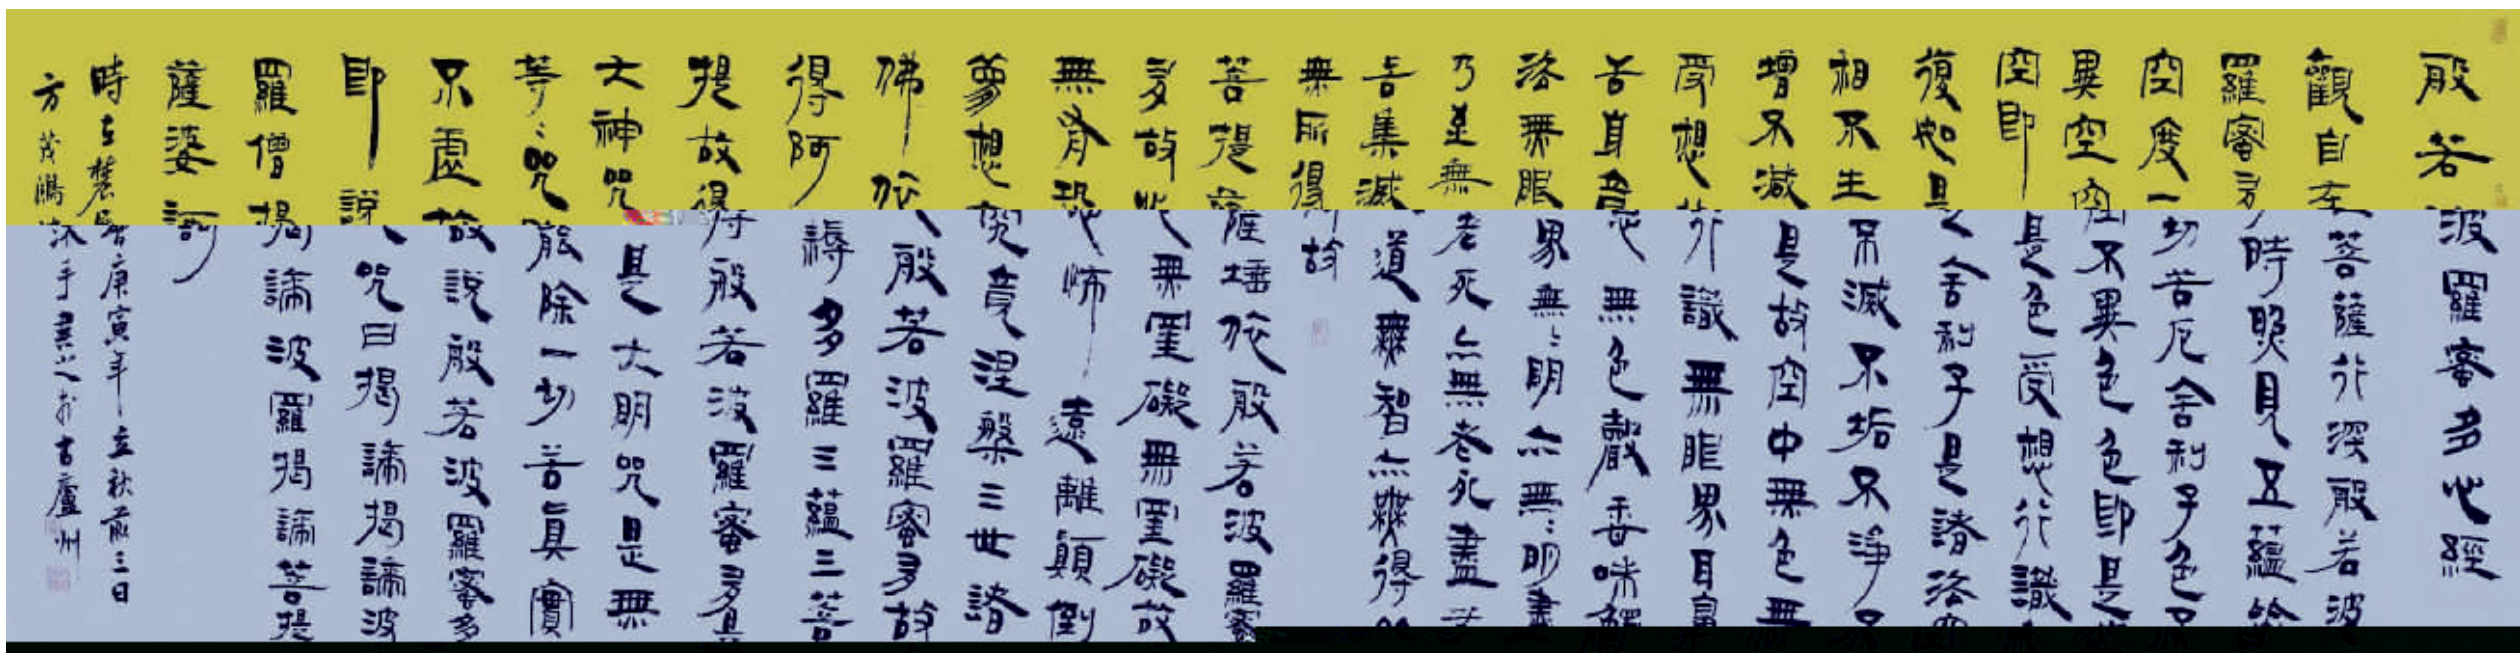 般若波羅蜜多心經
觀自在菩薩行深般若波
羅蜜多時照見五蘊皆
空度一切苦厄舍利子色不
異空空不異色色即是
空即是色受想行識亦
復如是舍利子是諸法空
相不生不滅不垢不淨不
增不減是故空中無色無
受想行識無眼界耳鼻
舌身意無色聲香味觸
法無眼界無〻明亦無〻明盡
乃至無老死亦無老死盡
苦集滅道無智亦無得以
無所得故
菩提薩埵依般若波羅蜜
多故心無罣礙無罣礙故
無有恐怖遠離顛倒
夢想究竟涅槃三世諸
佛依般若波羅蜜多故
得阿耨多羅三藐三菩
提故得般若波羅蜜多是
大神咒是大明咒是無
等〻咒能除一切苦真實
不虛故說般若波羅蜜多
即說咒曰揭諦揭諦波
羅僧揭諦波羅揭諦菩提
薩婆訶
時在農曆庚寅年立秋前三日
方茂鴻沐手書之於古廬州